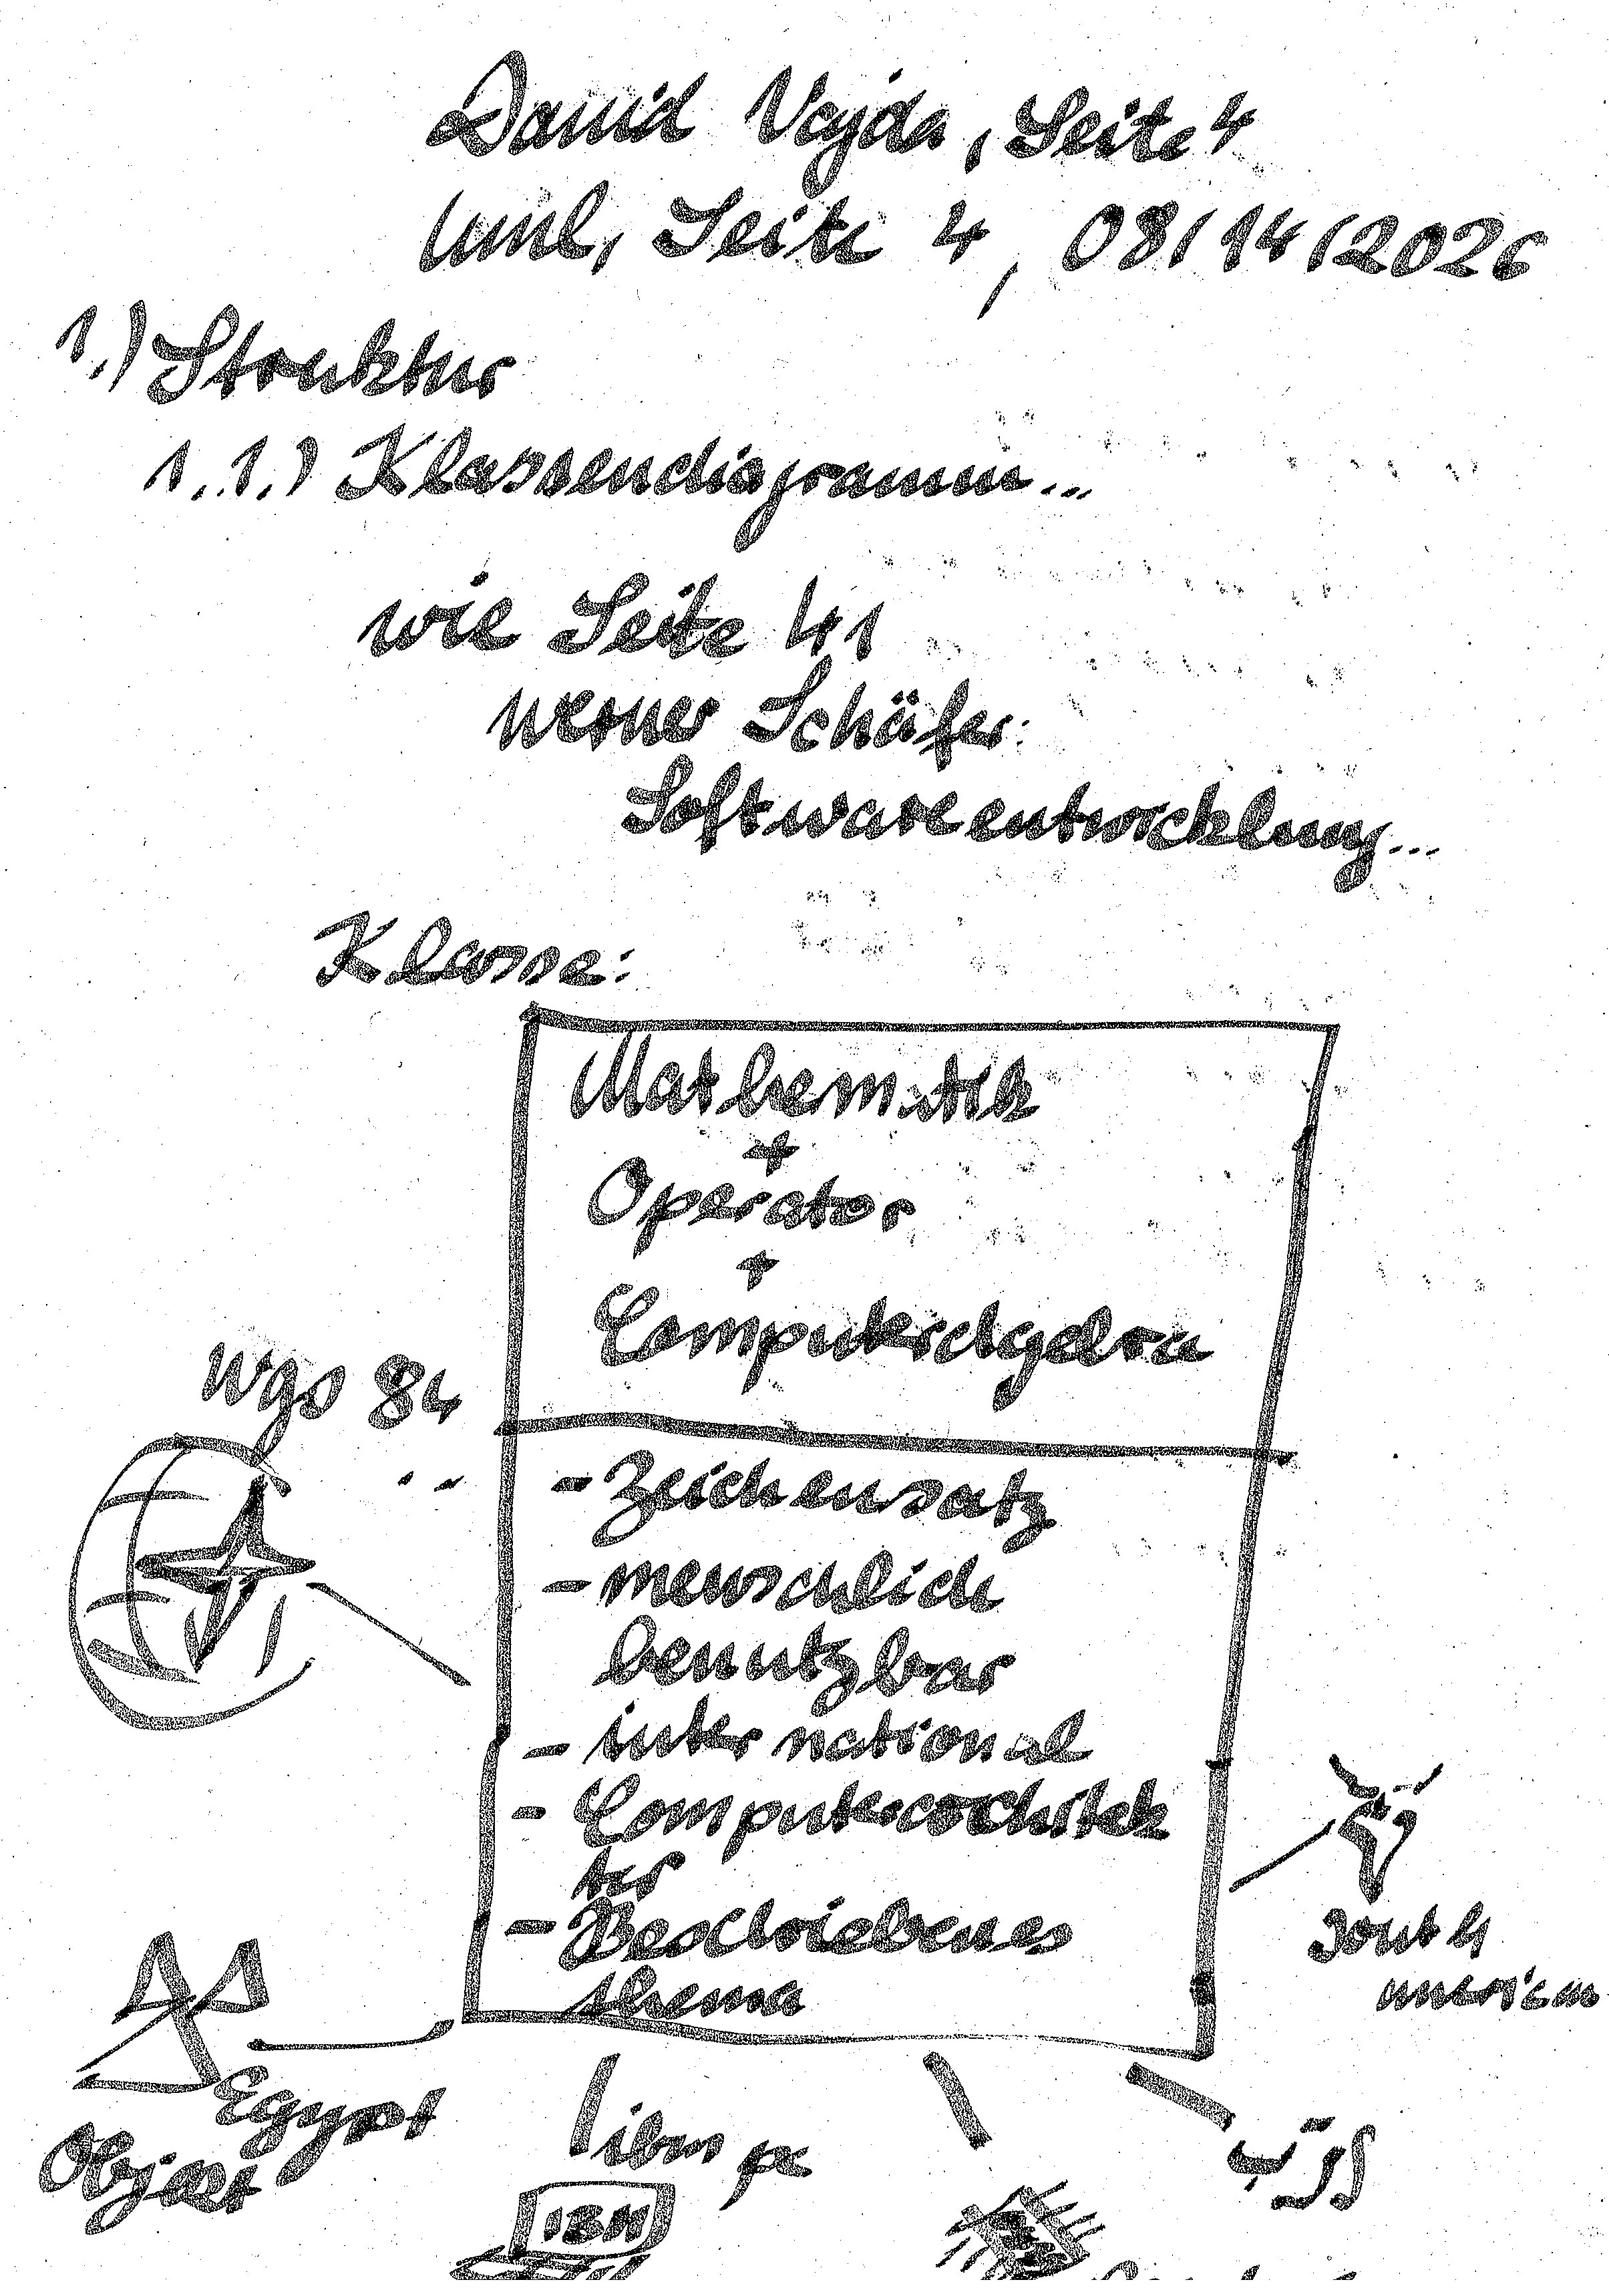 David Vajda, Seite 4
Uml, Seite 4, 08/14/2026
1.) Struktur
1.1.) Klassendiagramm...
wie Seite 41
Werner Schäfer:
Softwareentwicklung...
Klasse:
Mathematik
+
Operator
+
Computeralgebra
Wgs 84
- Zeichensatz
- menschlich
benutzbar
- international
- Computerarchitek
tur
- Beschriebenes
thema
South
american
Egypt
Objekt
ibm pc
IBM